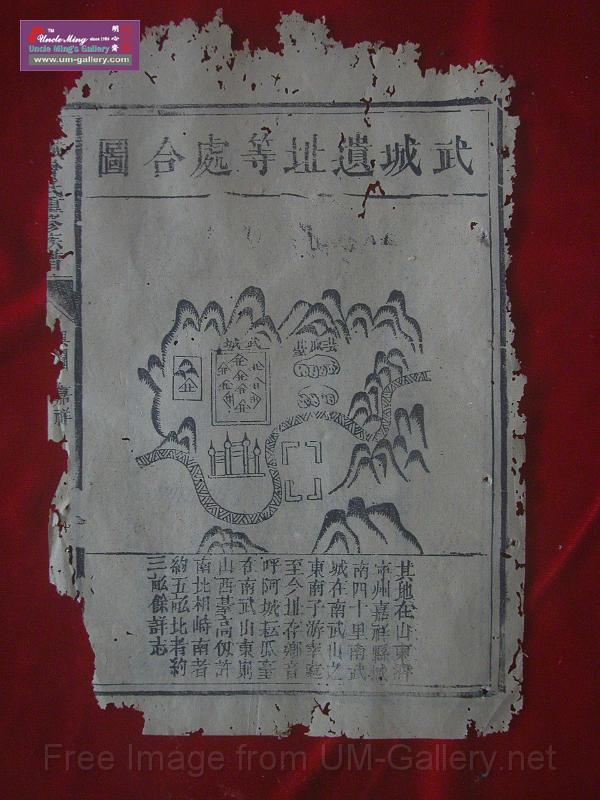 TM
Uncle Ming since 1986
明心齋
Uncle Ming's Gallery
www.um-gallery.com
武城遺址等處合圖
武城
其地在山東濟
寧州嘉祥縣城
南四十里南武
城在南武山之
東南子游宰
至今址存鄉音
呼阿城耘瓜臺
在南武山東則
山西臺高仭許
南北相峙南者
約五畝北者約
三畝餘詳志
Free Image from UM-Gallery.net